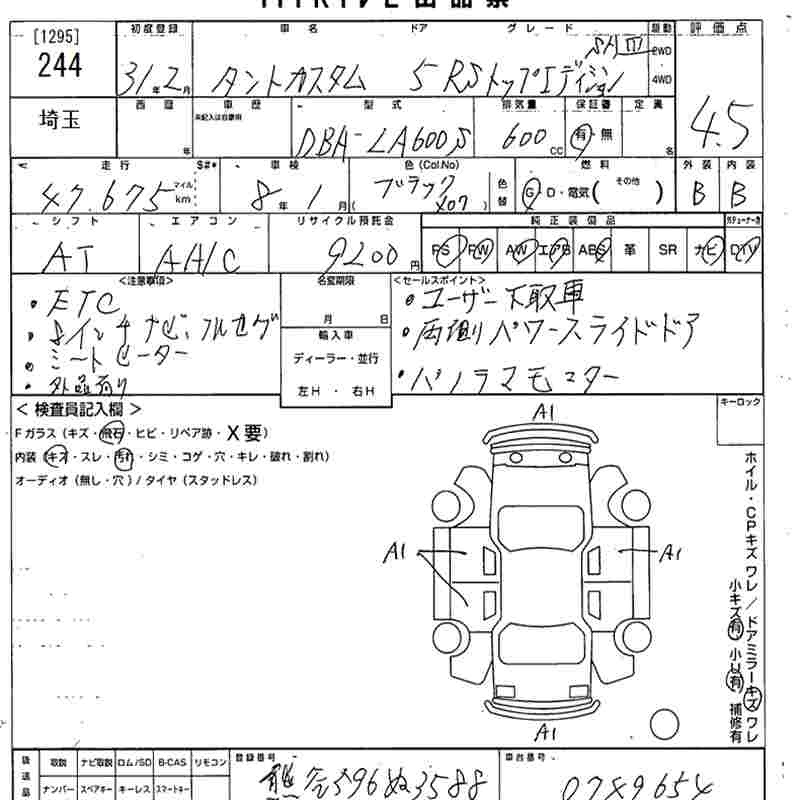 [1295]
244
初度登録 車名 ドア グレード 駆動 評価点
31年2月 タントカスタム 5 RSトップエディション SAⅢ 2WD 4WD 4.5
埼玉
西暦 車歴 型式 排気量 保証書 定員
未記入は自家用
年 DBA-LA600S 600 CC 有・無 名
走行 $#* 車検 色(Col.No) 燃料 外装 内装
47.675 マイル km 8年1月 ( ブラック X07 ) 色替 G・D・電気( その他 ) B B
シフト エアコン リサイクル預託金 純正装備品
AT AA/C 9200円 PS PW AW エアB ABS 革 SR ナビ DTV
<注意事項> 名変期限 <セールスポイント>
・ETC
・8インチナビ、フルセグ
・シートヒーター
・外品有り
月 日
輸入車
ディーラー・並行
左H ・ 右H
・ユーザー下取車
・両側パワースライドドア
・パノラマモニター
< 検査員記入欄 >
Fガラス(キズ・飛石・ヒビ・リペア跡・X要)
内装(キズ・スレ・汚れ・シミ・コゲ・穴・キレ・破れ・割れ)
オーディオ(無し・穴)/タイヤ(スタッドレス)
キーロック
A1
A1
A1
A1
ホイル・CPキズ ワレ/ドアミラーキズ ワレ
小キズ有 小U有 補修有
後送品
取説 ナビ取説 ロム/SD B-CAS リモコン
ナンバー スペアキー キーレス スマートキー
登録番号 車台番号
396ぬ3588 0789654